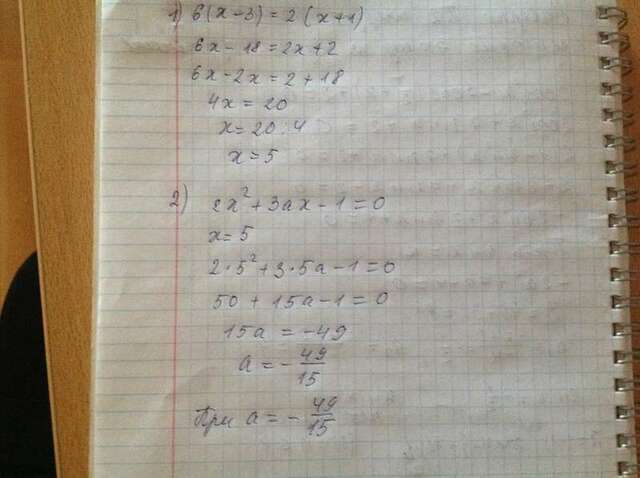 1) 6(x-3)=2(x+1)
6x-18=2x+2
6x-2x=2+18
4x=20
x=20:4
x=5
2) 2x²+3ax-1=0
x=5
2·5²+3·5a-1=0
50+15a-1=0
15a=-49
a=-49/15
При a=-49/15